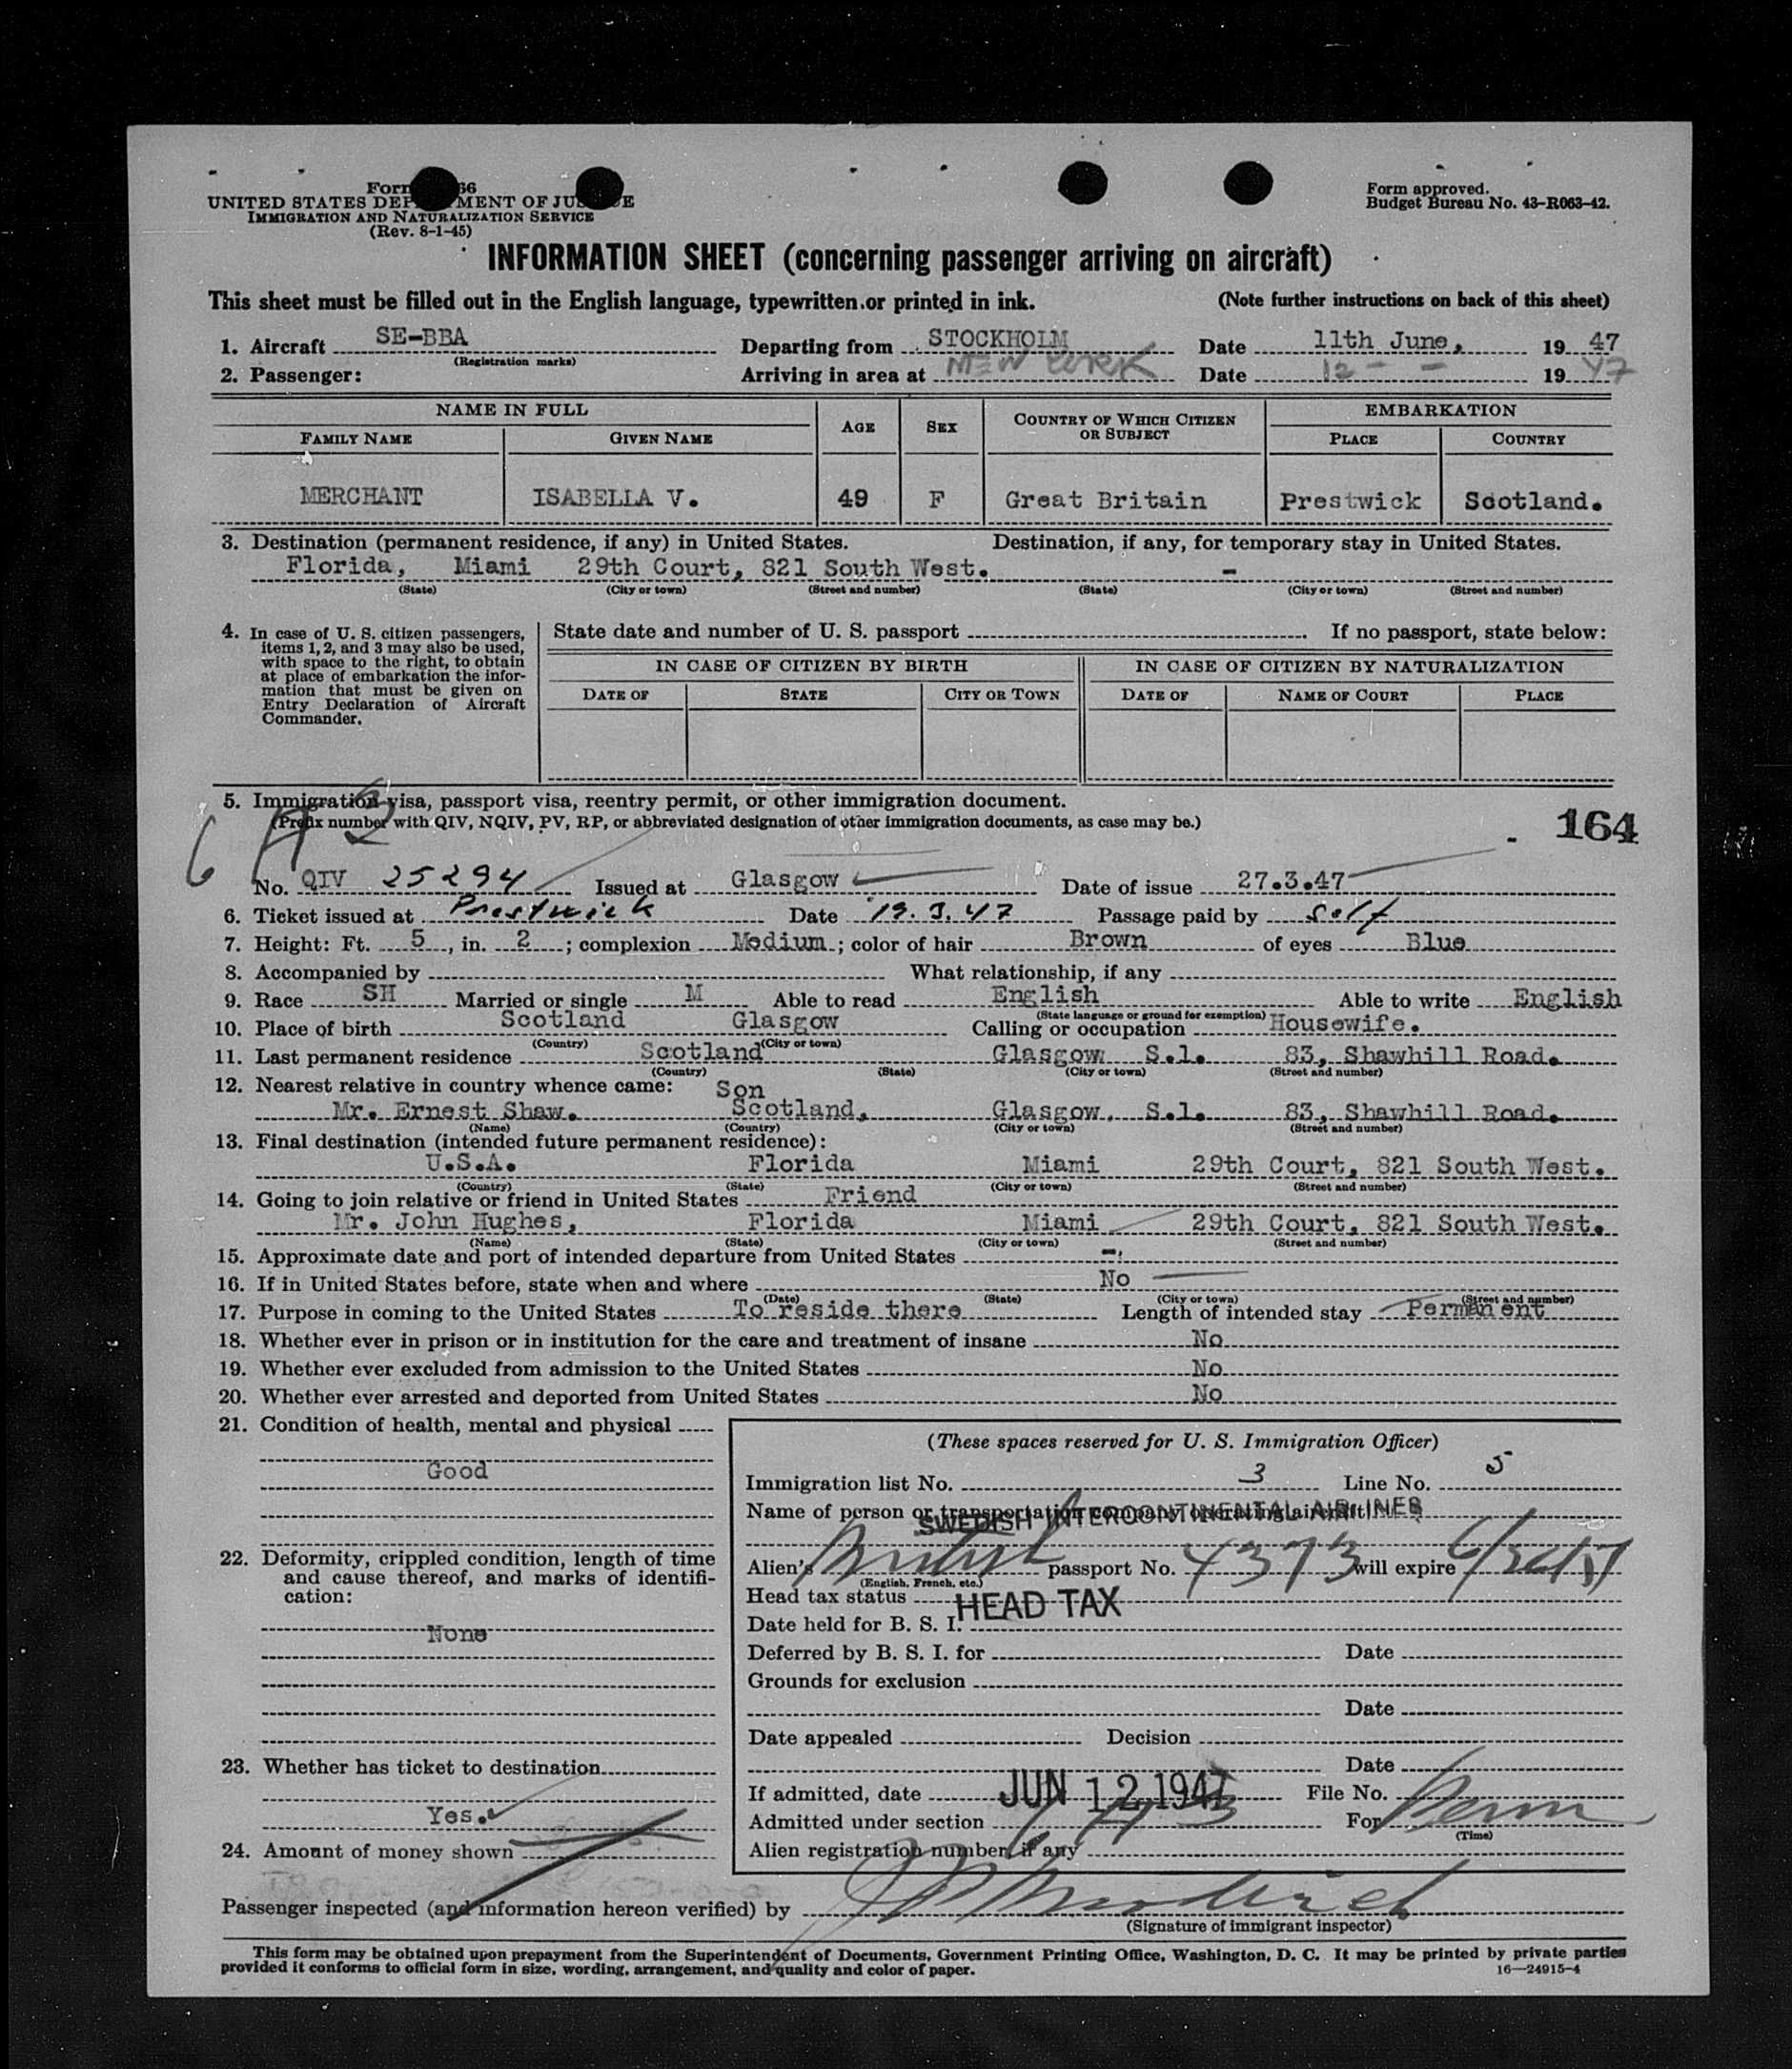 Form 66
UNITED STATES DEP MENT OF JUS E
IMMIGRATION AND NATURALIZATION SERVICE
(Rev. 8-1-45)
Form approved.
Budget Bureau No. 43-R063-42.
INFORMATION SHEET (concerning passenger arriving on aircraft)
This sheet must be filled out in the English language, typewritten or printed in ink. (Note further instructions on back of this sheet)
1. Aircraft SE-BBA Departing from STOCKHOLM Date 11th June, 19 47
(Registration marks)
2. Passenger: Arriving in area at NEW YORK Date 12 - - 19 47
NAME IN FULL AGE SEX COUNTRY OF WHICH CITIZEN OR SUBJECT EMBARKATION
FAMILY NAME GIVEN NAME PLACE COUNTRY
MERCHANT ISABELLA V. 49 F Great Britain Prestwick Scotland.
3. Destination (permanent residence, if any) in United States. Destination, if any, for temporary stay in United States.
Florida, Miami 29th Court, 821 South West. -
(State) (City or town) (Street and number) (State) (City or town) (Street and number)
4. In case of U. S. citizen passengers,
items 1, 2, and 3 may also be used,
with space to the right, to obtain
at place of embarkation the infor-
mation that must be given on
Entry Declaration of Aircraft
Commander.
State date and number of U. S. passport If no passport, state below:
IN CASE OF CITIZEN BY BIRTH IN CASE OF CITIZEN BY NATURALIZATION
DATE OF STATE CITY OR TOWN DATE OF NAME OF COURT PLACE
5. Immigration visa, passport visa, reentry permit, or other immigration document.
(Prefix number with QIV, NQIV, PV, RP, or abbreviated designation of other immigration documents, as case may be.)
164
6 A 3
No. QIV 25294 Issued at Glasgow Date of issue 27.3.47
6. Ticket issued at Prestwick Date 19.3.47 Passage paid by Self
7. Height: Ft. 5, in. 2; complexion Medium; color of hair Brown of eyes Blue
8. Accompanied by What relationship, if any
9. Race SH Married or single M Able to read English Able to write English
(State language or ground for exemption)
10. Place of birth Scotland Glasgow Calling or occupation Housewife.
(Country) (City or town)
11. Last permanent residence Scotland Glasgow S.1. 83, Shawhill Road.
(Country) (State) (City or town) (Street and number)
12. Nearest relative in country whence came: Son
Mr. Ernest Shaw. Scotland, Glasgow, S.1. 83, Shawhill Road.
(Name) (Country) (City or town) (Street and number)
13. Final destination (intended future permanent residence):
U.S.A. Florida Miami 29th Court, 821 South West.
(Country) (State) (City or town) (Street and number)
14. Going to join relative or friend in United States Friend
Mr. John Hughes, Florida Miami 29th Court, 821 South West.
(Name) (State) (City or town) (Street and number)
15. Approximate date and port of intended departure from United States -.
16. If in United States before, state when and where No
(Date) (State) (City or town) (Street and number)
17. Purpose in coming to the United States To reside there Length of intended stay Permanent
18. Whether ever in prison or in institution for the care and treatment of insane No
19. Whether ever excluded from admission to the United States No
20. Whether ever arrested and deported from United States No
21. Condition of health, mental and physical
Good
22. Deformity, crippled condition, length of time
and cause thereof, and marks of identifi-
cation:
None
23. Whether has ticket to destination
Yes.
24. Amount of money shown
(These spaces reserved for U. S. Immigration Officer)
Immigration list No. 3 Line No. 5
Name of person or transportation company operating aircraft
SWEDISH INTERCONTINENTAL AIRLINES
Alien's British passport No. 4373 will expire
(English, French, etc.)
Head tax status HEAD TAX
Date held for B. S. I.
Deferred by B. S. I. for Date
Grounds for exclusion
Date
Date appealed Decision
Date
If admitted, date JUN 12 1947 File No.
Admitted under section 6 A 3 For Perm
(Time)
Alien registration number, if any
Passenger inspected (and information hereon verified) by
(Signature of immigrant inspector)
This form may be obtained upon prepayment from the Superintendent of Documents, Government Printing Office, Washington, D. C. It may be printed by private parties
provided it conforms to official form in size, wording, arrangement, and quality and color of paper. 16—24915-4